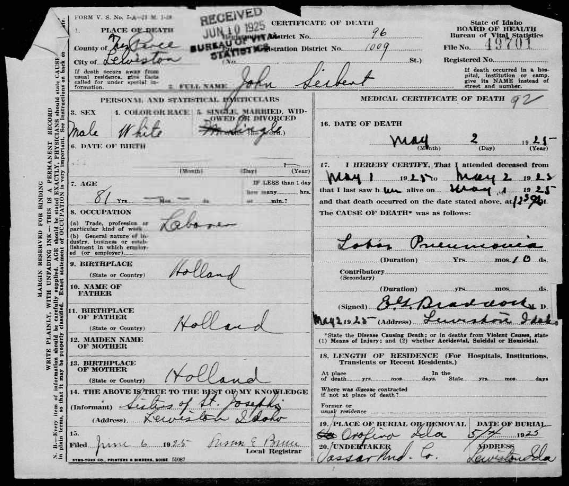 FORM V. S. No. 5-A—25 M. 1-20
RECEIVED
JUN 10 1925
BUREAU OF VITAL
STATISTICS
CERTIFICATE OF DEATH
State of Idaho
BOARD OF HEALTH
Bureau of Vital Statistics
1. PLACE OF DEATH
District No. 96
County of Nez Perce
Registration District No. 1009
File No. 49701
City of Lewiston
(No. St.)
Registered No.
If death occurs away from usual residence, give facts called for under special information.
If death occurred in a hospital, institution or camp, give its NAME instead of street and number.
2. FULL NAME John Siebert
PERSONAL AND STATISTICAL PARTICULARS
MEDICAL CERTIFICATE OF DEATH 92
3. SEX
Male
4. COLOR OR RACE
White
5. SINGLE, MARRIED, WIDOWED OR DIVORCED
Single
16. DATE OF DEATH
May 2 1925
(Month) (Day) (Year)
6. DATE OF BIRTH
(Month) (Day) (Year)
17. I HEREBY CERTIFY, That I attended deceased from
May 1 1925 to May 2 1925
that I last saw him alive on May 1 1925
and that death occurred on the date stated above, at
7. AGE
81 Yrs. — mos. —
IF LESS than 1 day
how many hrs.
or min.?
The CAUSE OF DEATH* was as follows:
8. OCCUPATION
(a) Trade, profession or particular kind of work
Laborer
(b) General nature of industry, business or establishment in which employed (or employer)
Lobar Pneumonia
(Duration) Yrs. mos. 10 ds.
Contributory
(Secondary)
(Duration) Yrs. mos. ds.
9. BIRTHPLACE
(State or Country) Holland
10. NAME OF FATHER
(Signed) E G Braddock M. D.
May 2 1925 (Address) Lewiston Idaho
11. BIRTHPLACE OF FATHER
(State or Country) Holland
*State the Disease Causing Death; or in deaths from Violent Causes, state (1) Means of Injury; and (2) whether Accidental, Suicidal or Homicidal.
12. MAIDEN NAME OF MOTHER
18. LENGTH OF RESIDENCE (For Hospitals, Institutions, Transients or Recent Residents.)
13. BIRTHPLACE OF MOTHER
(State or Country) Holland
At place of death yrs. mos. days State yrs. mos. days
Where was disease contracted if not at place of death?
Former or usual residence
14. THE ABOVE IS TRUE TO THE BEST OF MY KNOWLEDGE
(Informant) Sisters of St. Joseph
(Address) Lewiston Idaho
19. PLACE OF BURIAL OR REMOVAL DATE OF BURIAL
Orofino Ida 1925
15.
Filed June 6 1925
Local Registrar
20. UNDERTAKER ADDRESS
Vassar Und. Co. Lewiston Ida
SYMS-YORK CO., PRINTERS & BINDERS, BOISE
MARGIN RESERVED FOR BINDING
WRITE PLAINLY, WITH UNFADING INK—THIS IS A PERMANENT RECORD